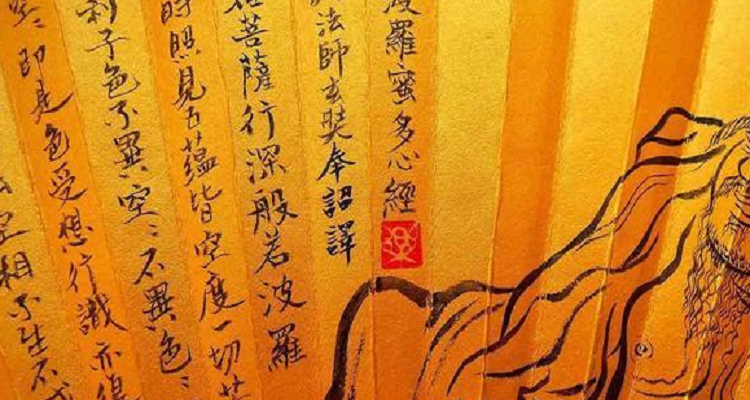 波羅蜜多心經
法師玄奘奉詔譯
菩薩行深般若波羅
時照見五蘊皆空度一切苦
利子色不異空〻不異色〻
空〻即是色受想行識亦復
空相不生不